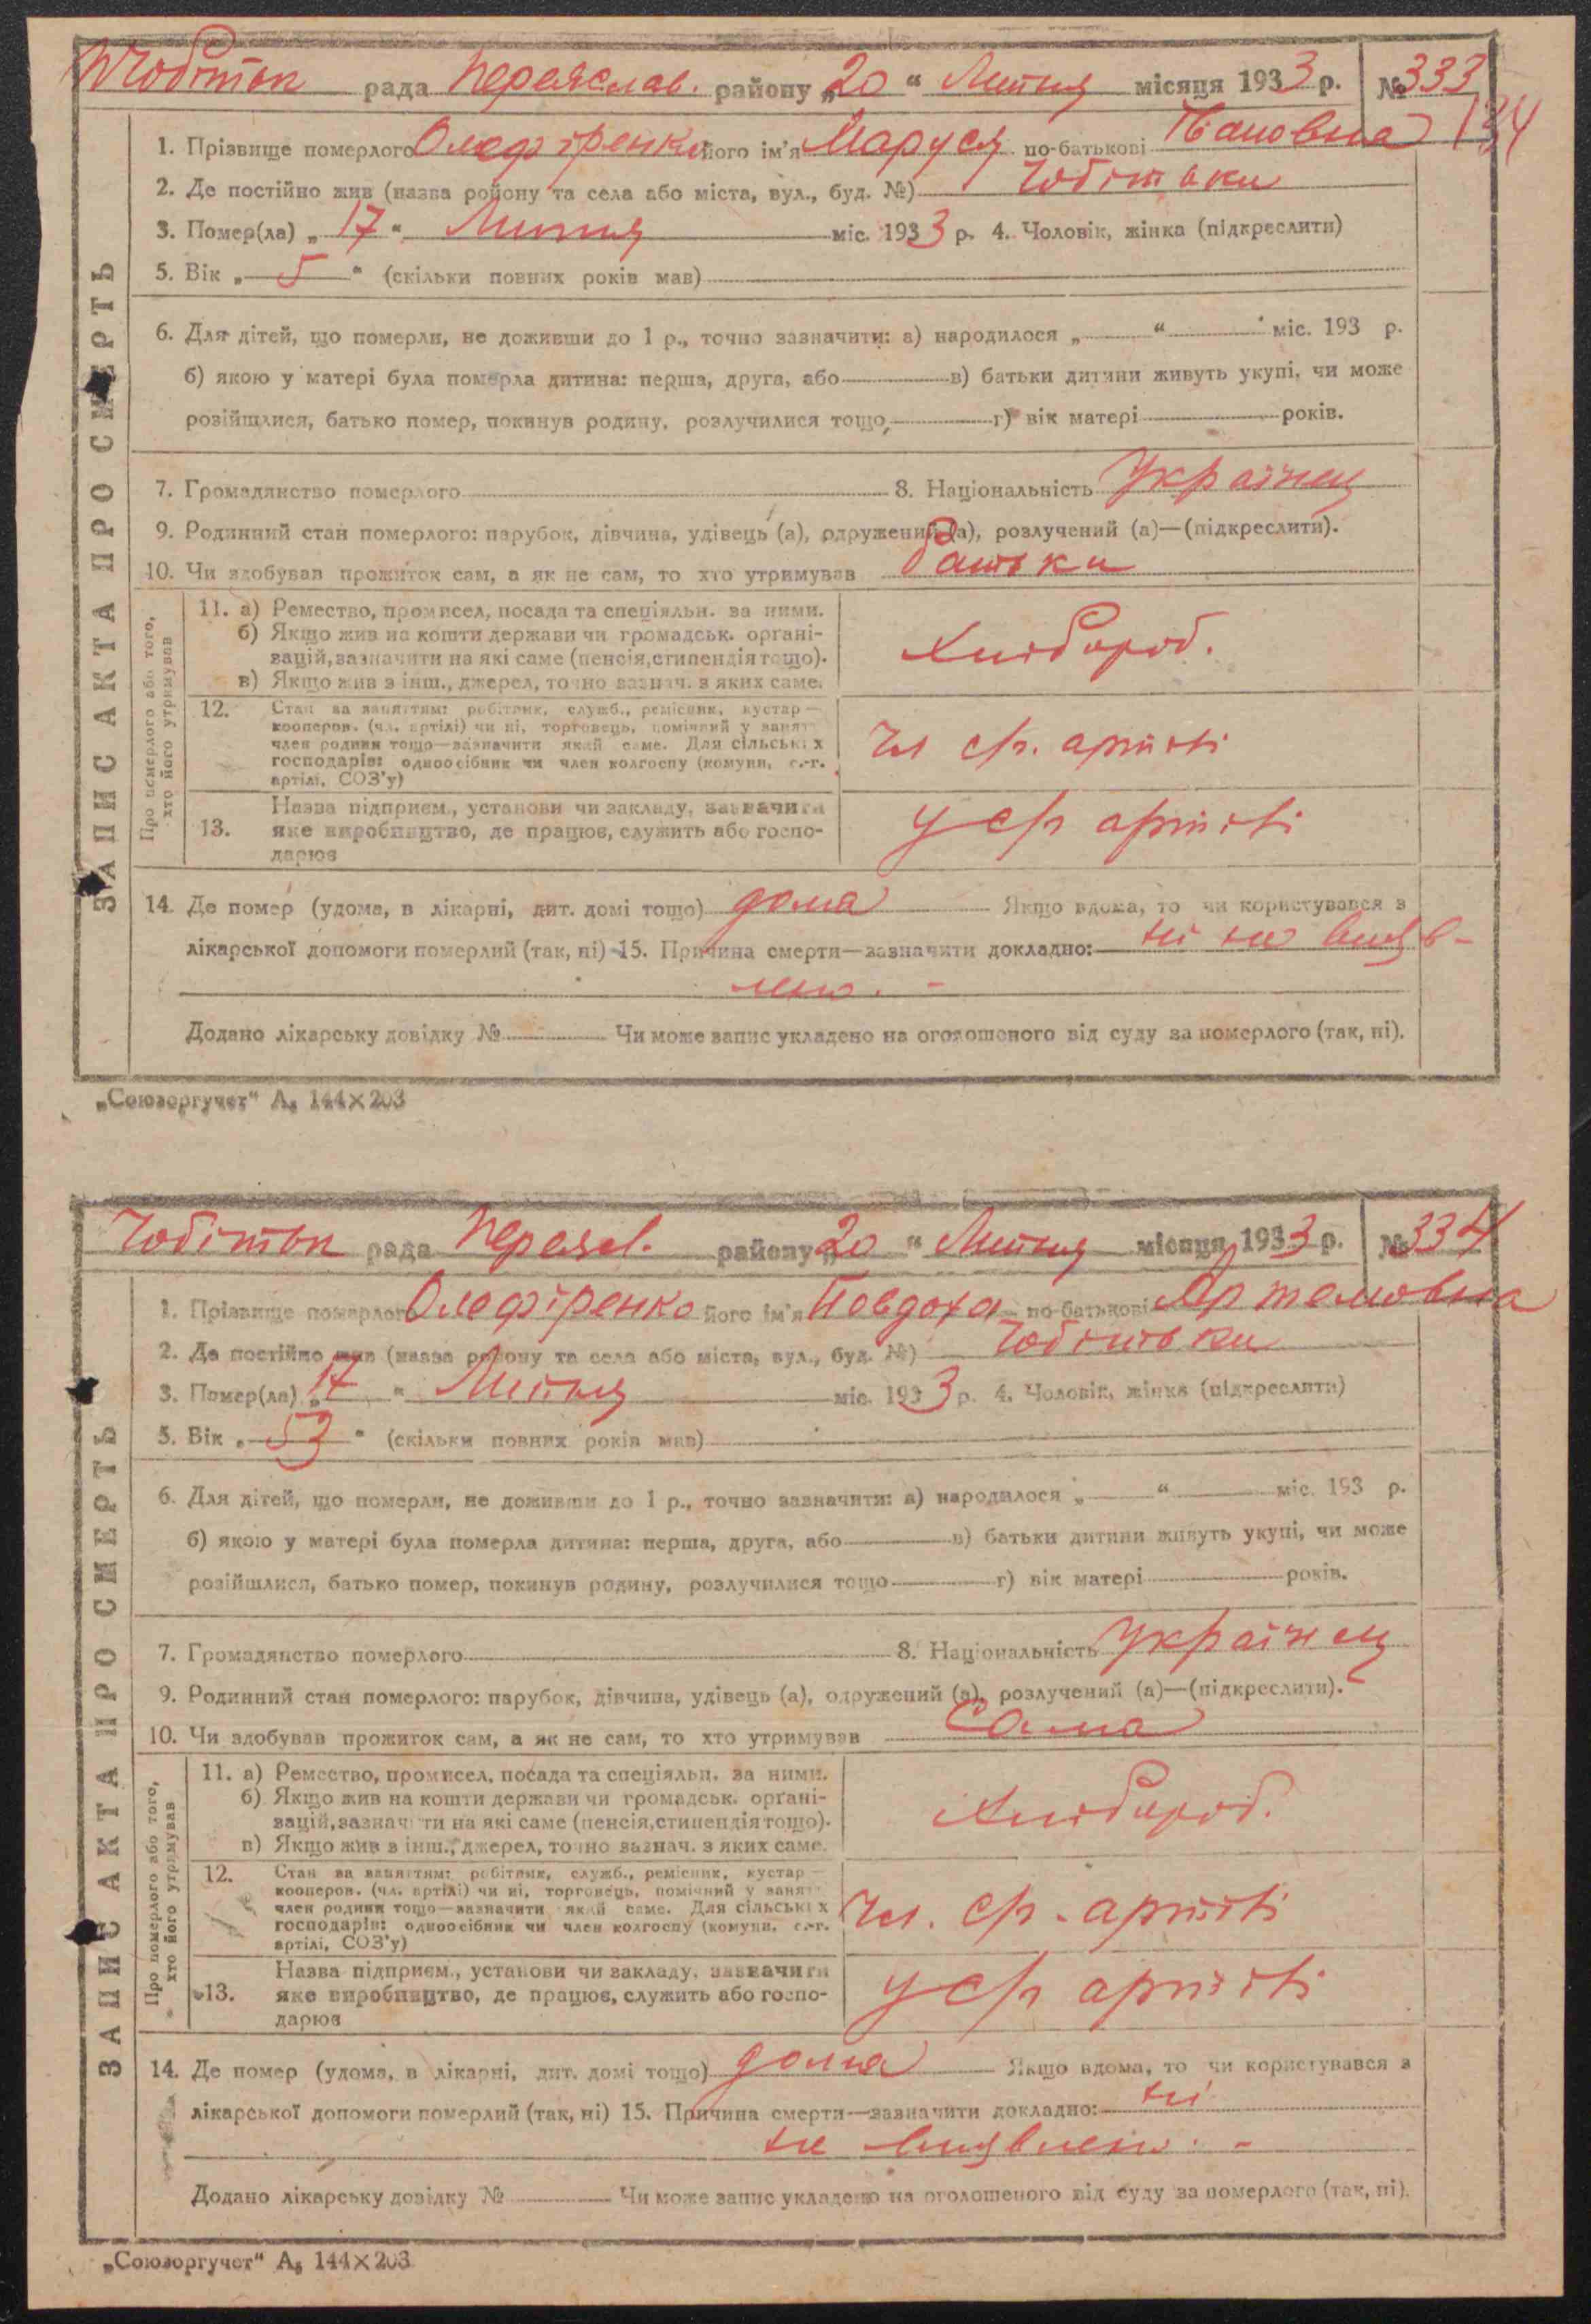 Чобітьк рада Переяслав. району „20“ Липня місяця 1933 р. №333
134
1. Прізвище померлого Олефіренко його ім'я Маруся по-батькові Івановна
2. Де постійно жив (назва району та села або міста, вул., буд. №) Чобітьки
3. Помер(ла) „17“ Липня міс. 1933 р. 4. Чоловік, жінка (підкреслити)
5. Вік „5“ (скільки повних років мав)
6. Для дітей, що померли, не доживши до 1 р., точно зазначити: а) народилося „ “ міс. 193 р.
б) якою у матері була померла дитина: перша, друга, або в) батьки дитини живуть укупі, чи може
розійшлися, батько помер, покинув родину, розлучилися тощо, г) вік матері років.
7. Громадянство померлого 8. Національність Українец
9. Родинний стан померлого: парубок, дівчина, удівець (а), одружений (а), розлучений (а)—(підкреслити).
10. Чи здобував прожиток сам, а як не сам, то хто утримував батьки
ЗАПИС АКТА ПРО СМЕРТЬ
Про померлого або того,
хто його утримував
11. а) Ремество, промисел, посада та спеціяльн. за ними.
б) Якщо жив на кошти держави чи громадськ. орґані-
зацій, зазначити на які саме (пенсія, стипендія тощо).
в) Якщо жив з інш., джерел, точно зазнач. з яких саме.
Хлібороб.
12. Стан за заняттям: робітник, служб., ремісник, кустар—
кооперов. (чл. артілі) чи ні, торговець, помічний у занят.
член родини тощо—зазначити який саме. Для сільських
господарів: одноосібник чи член колгоспу (комуни, с.-г.
артілі, СОЗ'у)
Чл ср. артілі
13. Назва підприєм., установи чи закладу, зазначити
яке виробництво, де працює, служить або госпо-
дарює
У ср артілі
14. Де помер (удома, в лікарні, дит. домі тощо) дома Якщо вдома, то чи користувався з
лікарської допомоги померлий (так, ні) 15. Причина смерти—зазначити докладно: ні не вияв-
лено. -
Додано лікарську довідку № Чи може запис укладено на оголошеного від суду за померлого (так, ні).
„Союзоргучет“ А₅ 144×203
Чобітьк рада Переясл. району „20“ Липня місяця 1933 р. №334
1. Прізвище померлого Олефіренко його ім'я Повдоха по-батькові Артемовна
2. Де постійно жив (назва району та села або міста, вул., буд. №) Чобітьки
3. Помер(ла) „17“ Липня міс. 1933 р. 4. Чоловік, жінка (підкреслити)
5. Вік „53“ (скільки повних років мав)
6. Для дітей, що померли, не доживши до 1 р., точно зазначити: а) народилося „ “ міс. 193 р.
б) якою у матері була померла дитина: перша, друга, або в) батьки дитини живуть укупі, чи може
розійшлися, батько помер, покинув родину, розлучилися тощо г) вік матері років.
7. Громадянство померлого 8. Національність Українец
9. Родинний стан померлого: парубок, дівчина, удівець (а), одружений (а), розлучений (а)—(підкреслити).
10. Чи здобував прожиток сам, а як не сам, то хто утримував Сама
ЗАПИС АКТА ПРО СМЕРТЬ
Про померлого або того,
хто його утримував
11. а) Ремество, промисел, посада та спеціяльн. за ними.
б) Якщо жив на кошти держави чи громадськ. орґані-
зацій, зазначити на які саме (пенсія, стипендія тощо).
в) Якщо жив з інш., джерел, точно зазнач. з яких саме.
Хлібороб.
12. Стан за заняттям: робітник, служб., ремісник, кустар—
кооперов. (чл. артілі) чи ні, торговець, помічний у занят.
член родини тощо—зазначити який саме. Для сільських
господарів: одноосібник чи член колгоспу (комуни, с.-г.
артілі, СОЗ'у)
Чл. ср. артілі
13. Назва підприєм., установи чи закладу, зазначити
яке виробництво, де працює, служить або госпо-
дарює
У ср артілі
14. Де помер (удома, в лікарні, дит. домі тощо) дома Якщо вдома, то чи користувався з
лікарської допомоги померлий (так, ні) 15. Причина смерти—зазначити докладно: ні
не виявлено. -
Додано лікарську довідку № Чи може запис укладено на оголошеного від суду за померлого (так, ні).
„Союзоргучет“ А₅ 144×203